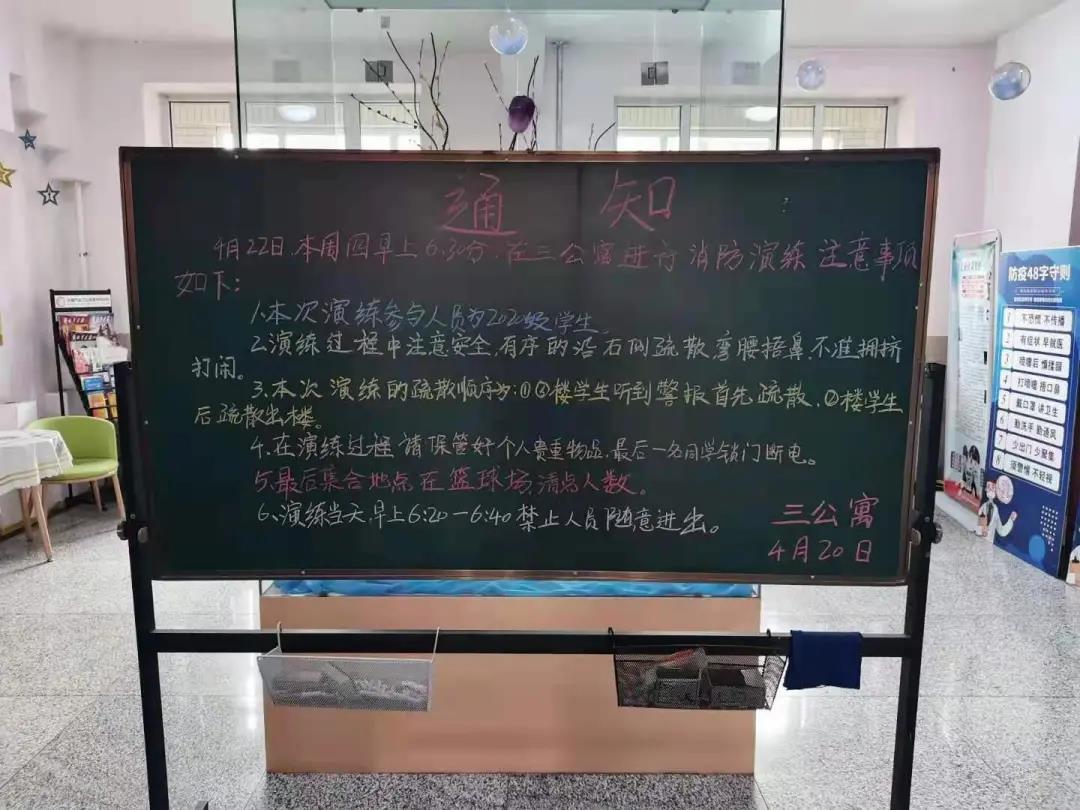 通 知
4月22日.本周四早上6:30分.在三公寓进行消防演练注意事项
如下:
1.本次演练参与人员为202级学生。
2.演练过程中注意安全,有序的沿右侧疏散,弯腰捂鼻,不准拥挤
打闹。
3.本次演练的疏散顺序为:①③楼学生听到警报首先疏散,②楼学生
后疏散出楼。
4.在演练过程请保管好个人贵重物品,最后一名同学锁门断电。
5.最后集合地点在篮球场,清点人数。
6、演练当天早上6:20—6:40禁止人员随意进出。
三公寓
4月20日
防疫48字守则
1 不恐慌 不传播
2 有症状 早就医
3 喷嚏后 慎揉眼
4 打喷嚏 捂口鼻
5 戴口罩 讲卫生
6 勤洗手 勤通风
7 少出门 少聚集
8 须警惕 不轻视